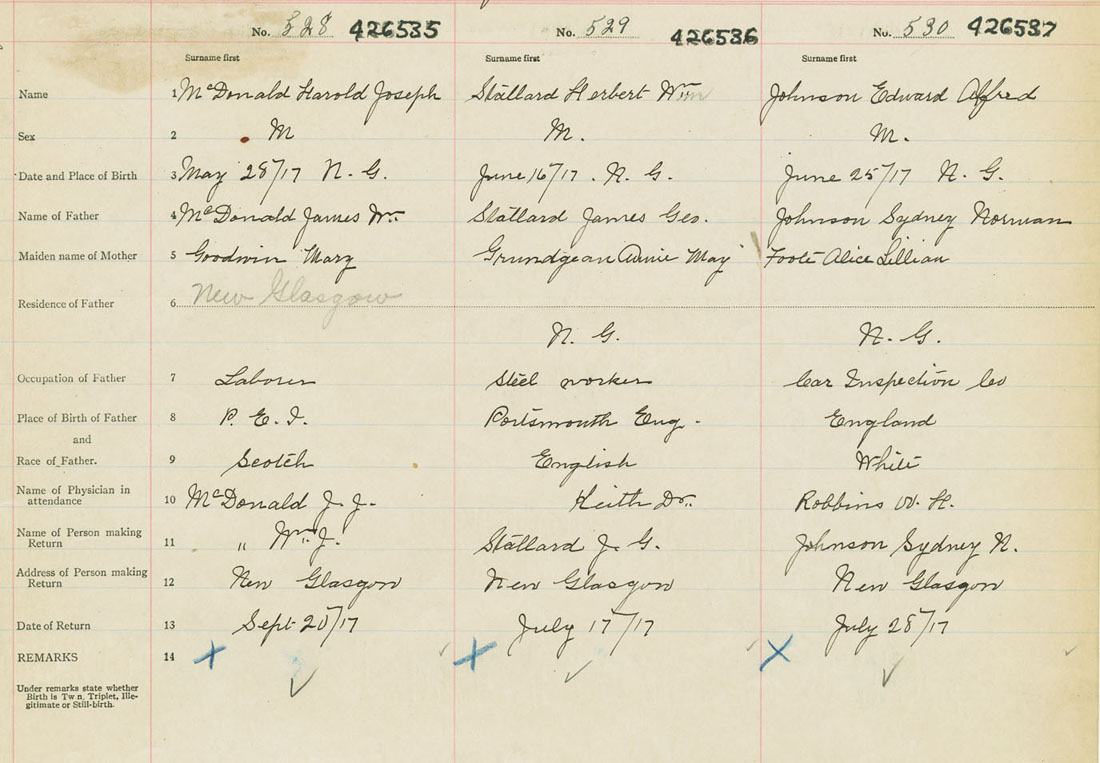 No. 528 426535 No. 529 426536 No. 530 426537
Surname first Surname first Surname first
Name 1 McDonald Harold Joseph Stallard Herbert Wm Johnson Edward Alfred
Sex 2 M M. M.
Date and Place of Birth 3 May 28/17 N. G. June 16/17. N. G. June 25/17 N. G.
Name of Father 4 McDonald James Wm. Stallard James Geo. Johnson Sydney Norman
Maiden name of Mother 5 Goodwin Mary Grundgean Annie May Foote Alice Lillian
Residence of Father 6 New Glasgow
N. G. N. G.
Occupation of Father 7 Laborer Steel worker Car Inspection Co
Place of Birth of Father 8 P. E. I. Portsmouth Eng. England
and
Race of Father. 9 Scotch English White
Name of Physician in
attendance 10 McDonald J. J. Keith Dr. Robbins W. H.
Name of Person making
Return 11 „ Wm. J. Stallard J. G. Johnson Sydney N.
Address of Person making
Return 12 New Glasgow New Glasgow New Glasgow
Date of Return 13 Sept 20/17 July 17/17 July 28/17
REMARKS 14
Under remarks state whether
Birth is Tw n, Triplet, Ille-
gitimate or Still-birth.